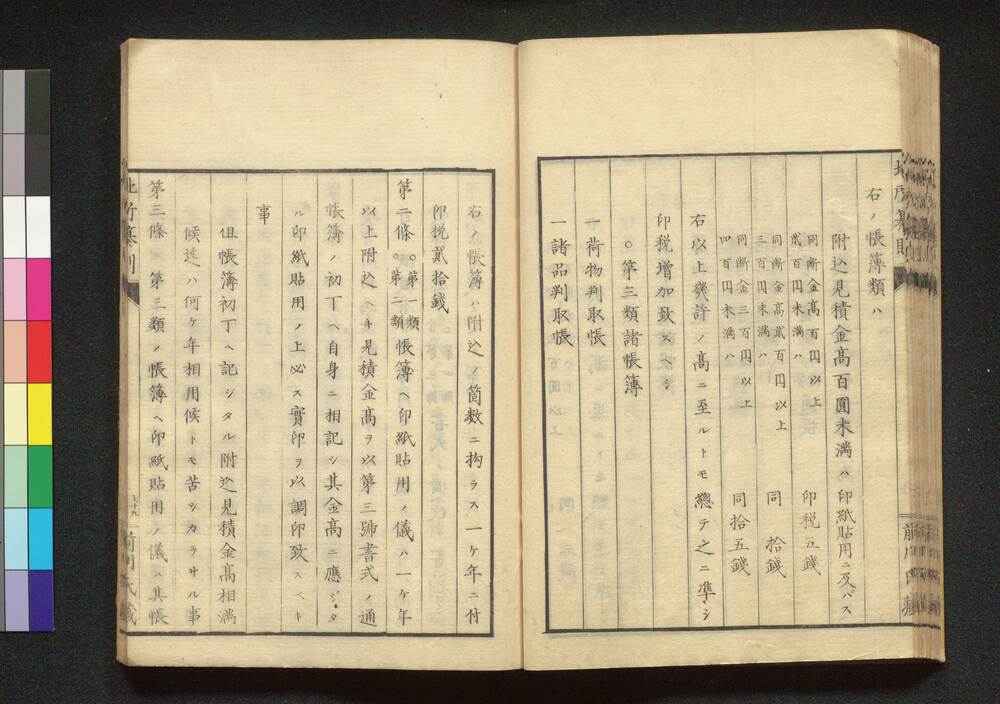 右ノ帳簿類ハ
附込見積金髙百圓未満ハ印紙貼用ニ及バス
同断金髙百円以上
貮百円未満ハ
印税五錢
同断金髙貮百円以上
三百円未満ハ
同 拾錢
同断金三百円以上
四百円未満ハ
同拾五錢
右以上幾許ノ髙ニ至ルトモ總テ之ニ準シ
印税増加致スヘシ
○第三類諸帳簿
一荷物判取帳
一諸品判取帳
右ノ帳簿ハ附込ノ箇数ニ拘ラス一ケ年ニ付
印税貮拾錢
第二條 ○第一類
第二類
帳簿ヘ印紙貼用ノ儀ハ一ケ年
以上附込ヘキ見積金髙ヲ以第三號書式ノ通
帳簿ノ初丁ヘ自身ニ相記シ其金髙ニ應シタ
ル印紙貼用ノ上必ス實印ヲ以調印致スヘキ
事
但帳簿初丁ヘ記シタル附込見積金髙相満
候迄ハ何ケ年相用候トモ苦シカラサル事
第三條 第三類ノ帳簿ヘ印紙貼用ノ儀ハ其帳
七十九
前川氏藏